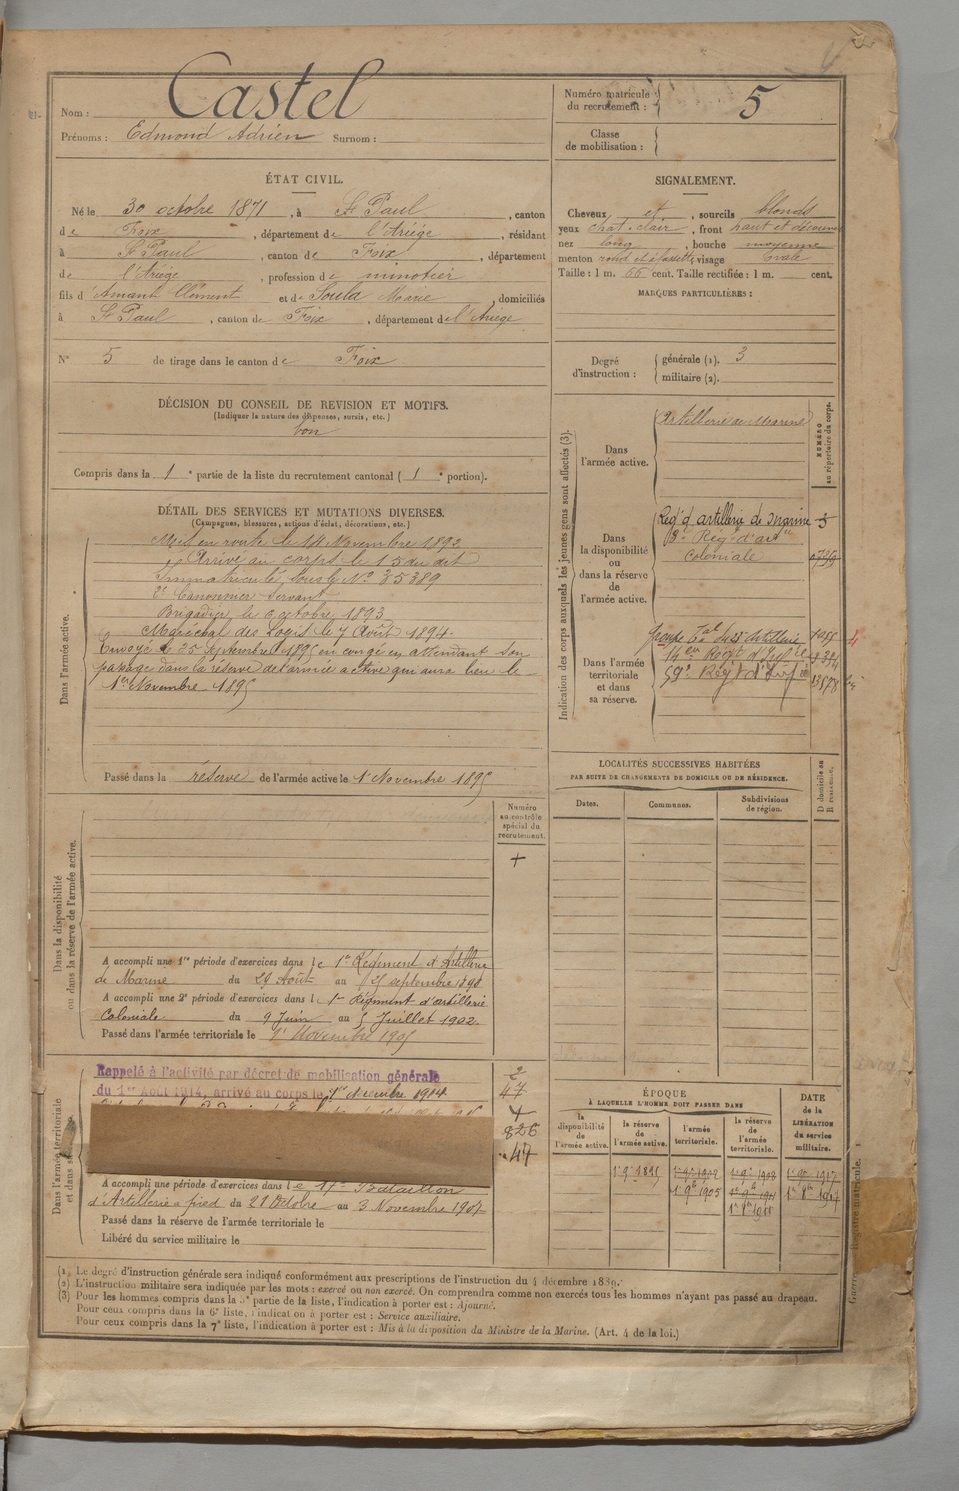 Nom : Castel
Prénoms : Edmond Adrien Surnom :
Numéro matricule du recrutement : 5
Classe de mobilisation :
ÉTAT CIVIL.
Né le 30 octobre 1871, à St Paul, canton
de Foix, département de l'Ariège, résidant
à St Paul, canton de Foix, département
de l'Ariège, profession de minotier
fils d'Amant Clément et de Soula Marie, domiciliés
à St Paul, canton de Foix, département de l'Ariège
N° 5 de tirage dans le canton de Foix
SIGNALEMENT.
Cheveux et, sourcils blonds
yeux chat. clair, front haut et découvert
nez long, bouche moyenne
menton rond et visage ovale
Taille : 1 m. 66 cent. Taille rectifiée : 1 m. cent.
MARQUES PARTICULIÈRES :
Degré d'instruction : générale (1). 3
militaire (2).
DÉCISION DU CONSEIL DE REVISION ET MOTIFS.
(Indiquer la nature des dispenses, sursis, etc.)
bon
Compris dans la 1e partie de la liste du recrutement cantonal (1e portion).
DÉTAIL DES SERVICES ET MUTATIONS DIVERSES.
(Campagnes, blessures, actions d'éclat, décorations, etc.)
Dans l'armée active.
Mis en route le 14 Novembre 1892
Arrivé au corps le 15 du dit
Immatriculé sous le N° 35389
2e Canonnier servant
Brigadier le octobre 1893
Maréchal des Logis le 7 Août 1894.
Envoyé le 25 Septembre 1895 en congé en attendant son
passage dans la réserve de l'armée active qui aura lieu le
1er Novembre 1895
Passé dans la réserve de l'armée active le 1er Novembre 1895
Indication des corps auxquels les jeunes gens sont affectés (3).
NUMÉRO au répertoire du corps.
Dans l'armée active.
Artillerie de Marine
Dans la disponibilité ou dans la réserve de l'armée active.
Regt d'artillerie de marine 5
Regt d'art
Coloniale
Dans l'armée territoriale et dans sa réserve.
Groupe Artillerie
14 Regt d'
59e Regt d'Infie
LOCALITÉS SUCCESSIVES HABITÉES
PAR SUITE DE CHANGEMENTS DE DOMICILE OU DE RÉSIDENCE.
Dates. Communes. Subdivisions de région. D domicile ou R résidence.
Dans la disponibilité ou dans la réserve de l'armée active.
Numéro au contrôle spécial du recrutement.
+
A accompli une 1re période d'exercices dans le 1er Régiment d'Artillerie
de Marine du 29 Août au septembre 1898
A accompli une 2e période d'exercices dans le 1er Régiment d'artillerie
Coloniale du 9 Juin au 5 Juillet 1902.
Passé dans l'armée territoriale le 1er Novembre 1905
Dans l'armée territoriale et dans sa
Rappelé à l'activité par décret de mobilisation générale
du 1er Août 1914, arrivé au corps le 1914
2
47
+
826
47
A accompli une période d'exercices dans le 17e Bataillon
d'Artillerie à pied du 21 Octobre au 3 Novembre 1907
Passé dans la réserve de l'armée territoriale le
Libéré du service militaire le
ÉPOQUE
À LAQUELLE L'HOMME DOIT PASSER DANS
la disponibilité de l'armée active. la réserve de l'armée active. l'armée territoriale. la réserve de l'armée territoriale.
DATE de la LIBÉRATION du service militaire.
1er 9bre 1895 1er 9bre 1902 1er 9bre 1908 1er 9bre 1917
1er 9bre 1905
(1) Le degré d'instruction générale sera indiqué conformément aux prescriptions de l'instruction du 4 décembre 1889.
(2) L'instruction militaire sera indiquée par les mots : exercé ou non exercé. On comprendra comme non exercés tous les hommes n'ayant pas passé au drapeau.
(3) Pour les hommes compris dans la 5e partie de la liste, l'indication à porter est : Ajourné.
Pour ceux compris dans la 6e liste, l'indication à porter est : Service auxiliaire.
Pour ceux compris dans la 7e liste, l'indication à porter est : Mis à la disposition du Ministre de la Marine. (Art. 4 de la loi.)
Registre matricule. 1